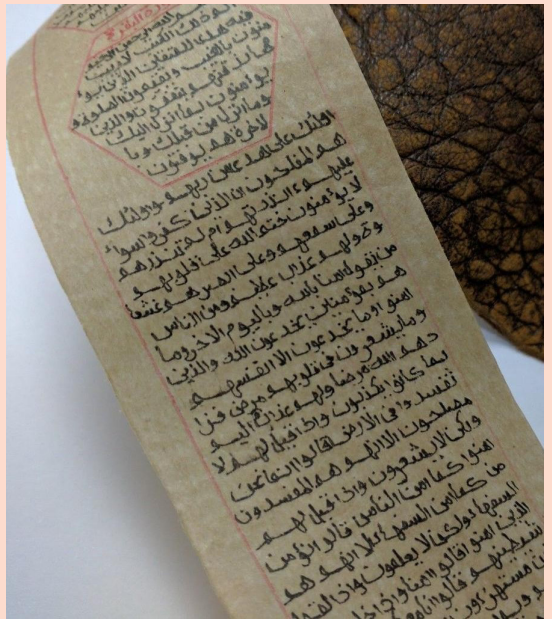 سورة البقرة
بسم الله الرحمن الرحيم
الم ذلك الكتب لا ريب
فيه هدى للمتقين الذين يؤ
منون بالغيب ويقيمون الصلوة و
مما رزقنهم ينفقون والذين
يؤمنون بما انزل اليك
وما انزل من قبلك وبا
لاخرة هم يوقنون
اولئك على هدى من ربهم واولئك
هم المفلحون ان الذين كفروا سواء
عليهم ءانذرتهم ام لم تنذرهم
لا يؤمنون ختم الله على قلوبهم
وعلى سمعهم وعلى ابصرهم غشوة
ولهم عذاب عظيم ومن الناس
من يقول امنا بالله وباليوم الاخر وما
هم بمؤمنين يخدعون الله والذين
امنوا وما يخدعون الا انفسهم
وما يشعرون في قلوبهم مرض فزا
دهم الله مرضا ولهم عذاب اليم
بما كانوا يكذبون واذا قيل لهم لا
تفسدوا في الارض قالوا انما نحن
مصلحون الا انهم هم المفسدون
ولكن لا يشعرون واذا قيل لهم
امنوا كما امن الناس قالوا انؤمن
كما امن السفهاء الا انهم هم
السفهاء ولكن لا يعلمون واذا لقوا
الذين امنوا قالوا امنا واذا خلوا
شيطينهم قالوا انا
مستهزءون